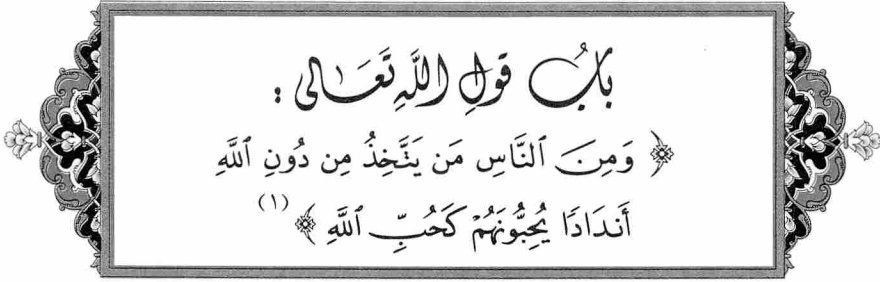 بَابُ قَوْلِ اللَّهِ تَعَالَى :
﴿ وَمِنَ ٱلنَّاسِ مَن يَتَّخِذُ مِن دُونِ ٱللَّهِ
أَندَادًا يُحِبُّونَهُمْ كَحُبِّ ٱللَّهِ ﴾ (١)